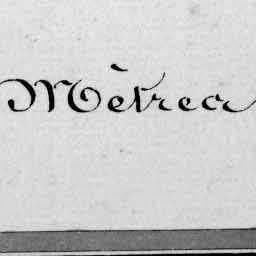 Mètrea